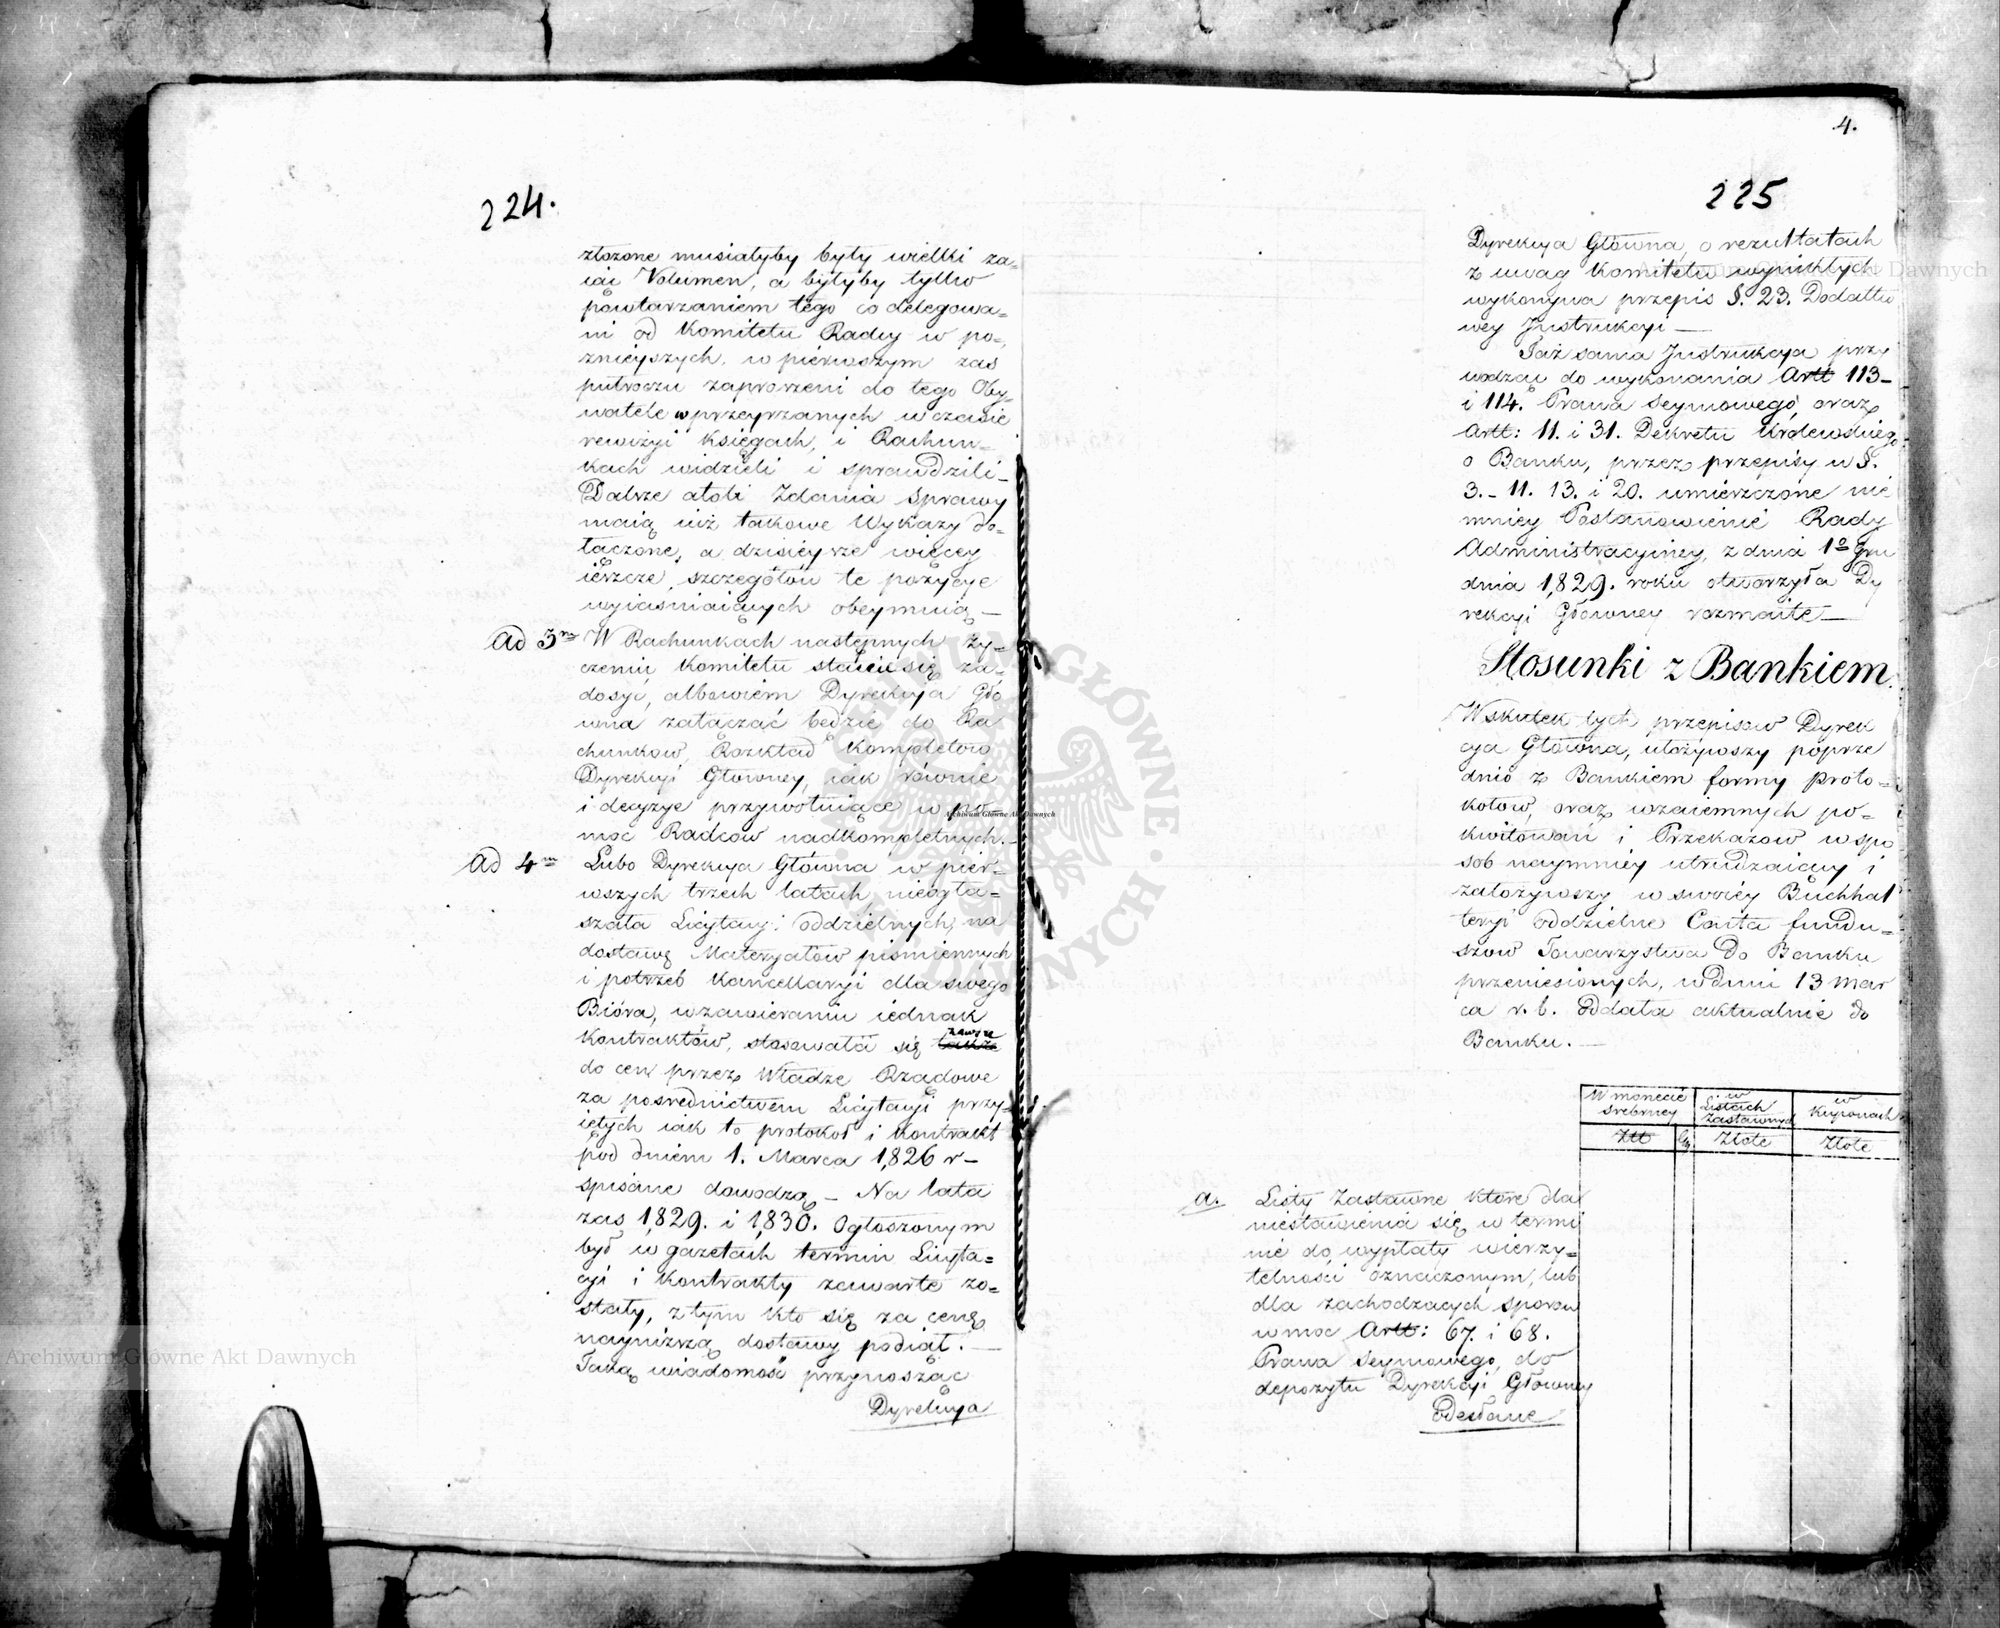 224.
złożone musiałyby były wielki za-
iąć Volumen, a byłyby tylko
powtarzaniem tego co delegowa-
ni od Komitetu Radcy w po-
znieyszych, w pierwszym zaś
pułroczu zaproszeni do tego Oby-
watele w przeyrzanych w czasie
rewizyi księgach, i Rachun-
kach widzieli i sprawdzili_
Dalsze atoli Zdania Sprawy
maią iuż takowe Wykazy do-
łączone, a dzisieysze więcey
ieszcze szczegółów te pozycye
wyiaśniaiących obeymuią_
Ad 3m W Rachunkach następnych ży-
czeniu Komitetu stanie się za-
dosyć, albowiem Dyrekcya Głó
wna załączać będzie do Ra
chunków, Rozkład Kompletów
Dyrekcyi Główney, iak równie
i decyzye przywołuiące w po-
moc Radców nadkompletnych._
Ad 4m Lubo Dyrekcya Główna w pier-
wszych trzech latach nieogła-
szała Licytacyi oddzielnych, na
dostawę Materyałów piśmiennych
i potrzeb Kancellaryi dla swego
Bióra, w zawieraniu iednak
Kontraktów, stosowała się zawsze
do cen przez Władze Rządowe
za pośrednictwem Licytacyi przy-
iętych iak to protokoł i Kontrakt
pod dniem 1. Marca 1,826 r_
spisane dowodzą_ Na lata
zaś 1,829. i 1,830. Ogłoszonym
był w gazetach termin Licyta-
cyi i Kontrakty zawarte zo-
stały, z tym kto się za cenę
nayniższą dostawy podiął._
Taką wiadomość przynosząc
Dyrekcya
4.
225
Dyrekcya Główna, o rezultatach
z uwag Komitetu wynikłych
wykonywa przepis §. 23. Dodatko
wey Instrukcyi_
Taż sama Instrukcya przy
wodząc do wykonania Artt 113_
i 114. Prawa Seymowego, oraz
Artt: 11. i 31. Dekretu Królewskiego
o Banku, przez przepisy w §.
3._ 11. 13. i 20. umieszczone nie
mniey Postanowienie Rady
Administracyiney, z dnia 1o Gru
dnia 1,829. roku otworzyła Dy
rekcyi Główney rozmaite_
Stosunki z Bankiem.
W skutek tych przepisów Dyrek
cya Główna, ułożywszy poprze
dnio z Bankiem formy proto-
kołów, oraz wzaiemnych po-
kwitowań i Przekazów w spo
sób naymniey utrudzaiący i
założywszy w swoiéy Buchhal
teryi oddzielne Conta fundu-
szów Towarzystwa do Banku
przeniesionych, w dniu 13 Mar
ca r. b. oddała aktualnie do
Banku._
W monecie srebrney
w Listach Zastawnych
w Kuponach
Złt
Gr
Złote
Złote
a. Listy Zastawne które dla
niestawienia się w termi
nie do wypłaty wierzy-
telności oznaczonym, lub
dla zachodzących sporów
w moc Artt: 67. i 68.
Prawa Seymowego, do
depozytu Dyrekcyi Główney
Odesłane
Archiwum Główne Akt Dawnych